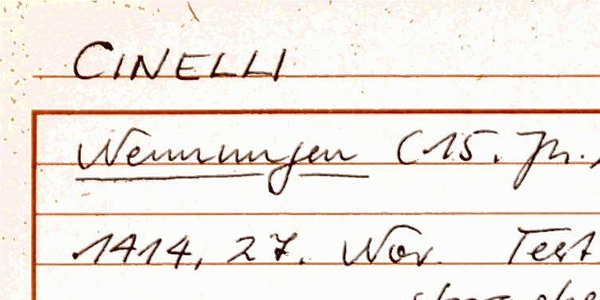 CINELLI
Nennungen (15. Jh.)
1414, 27. Nov. Test